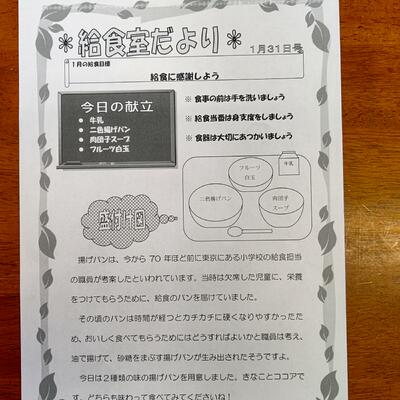 ＊給食室だより＊
1月31日号
1月の給食目標
給食に感謝しよう
今日の献立
● 牛乳
● 二色揚げパン
● 肉団子スープ
● フルーツ白玉
※ 食事の前は手を洗いましょう
※ 給食当番は身支度をしましょう
※ 食器は大切にあつかいましょう
盛付け図
牛乳
フルーツ
白玉
二色揚げパン
肉団子
スープ
揚げパンは、今から 70 年ほど前に東京にある小学校の給食担当
の職員が考案したといわれています。当時は欠席した児童に、栄養
をつけてもらうために、給食のパンを届けていました。
その頃のパンは時間が経つとカチカチに硬くなりやすかったた
め、おいしく食べてもらうためにはどうすればよいかと職員は考え、
油で揚げて、砂糖をまぶす揚げパンが生み出されたそうですよ。
今日は２種類の味の揚げパンを用意しました。きなことココアで
す。どちらも味わって食べてみてくださいね！